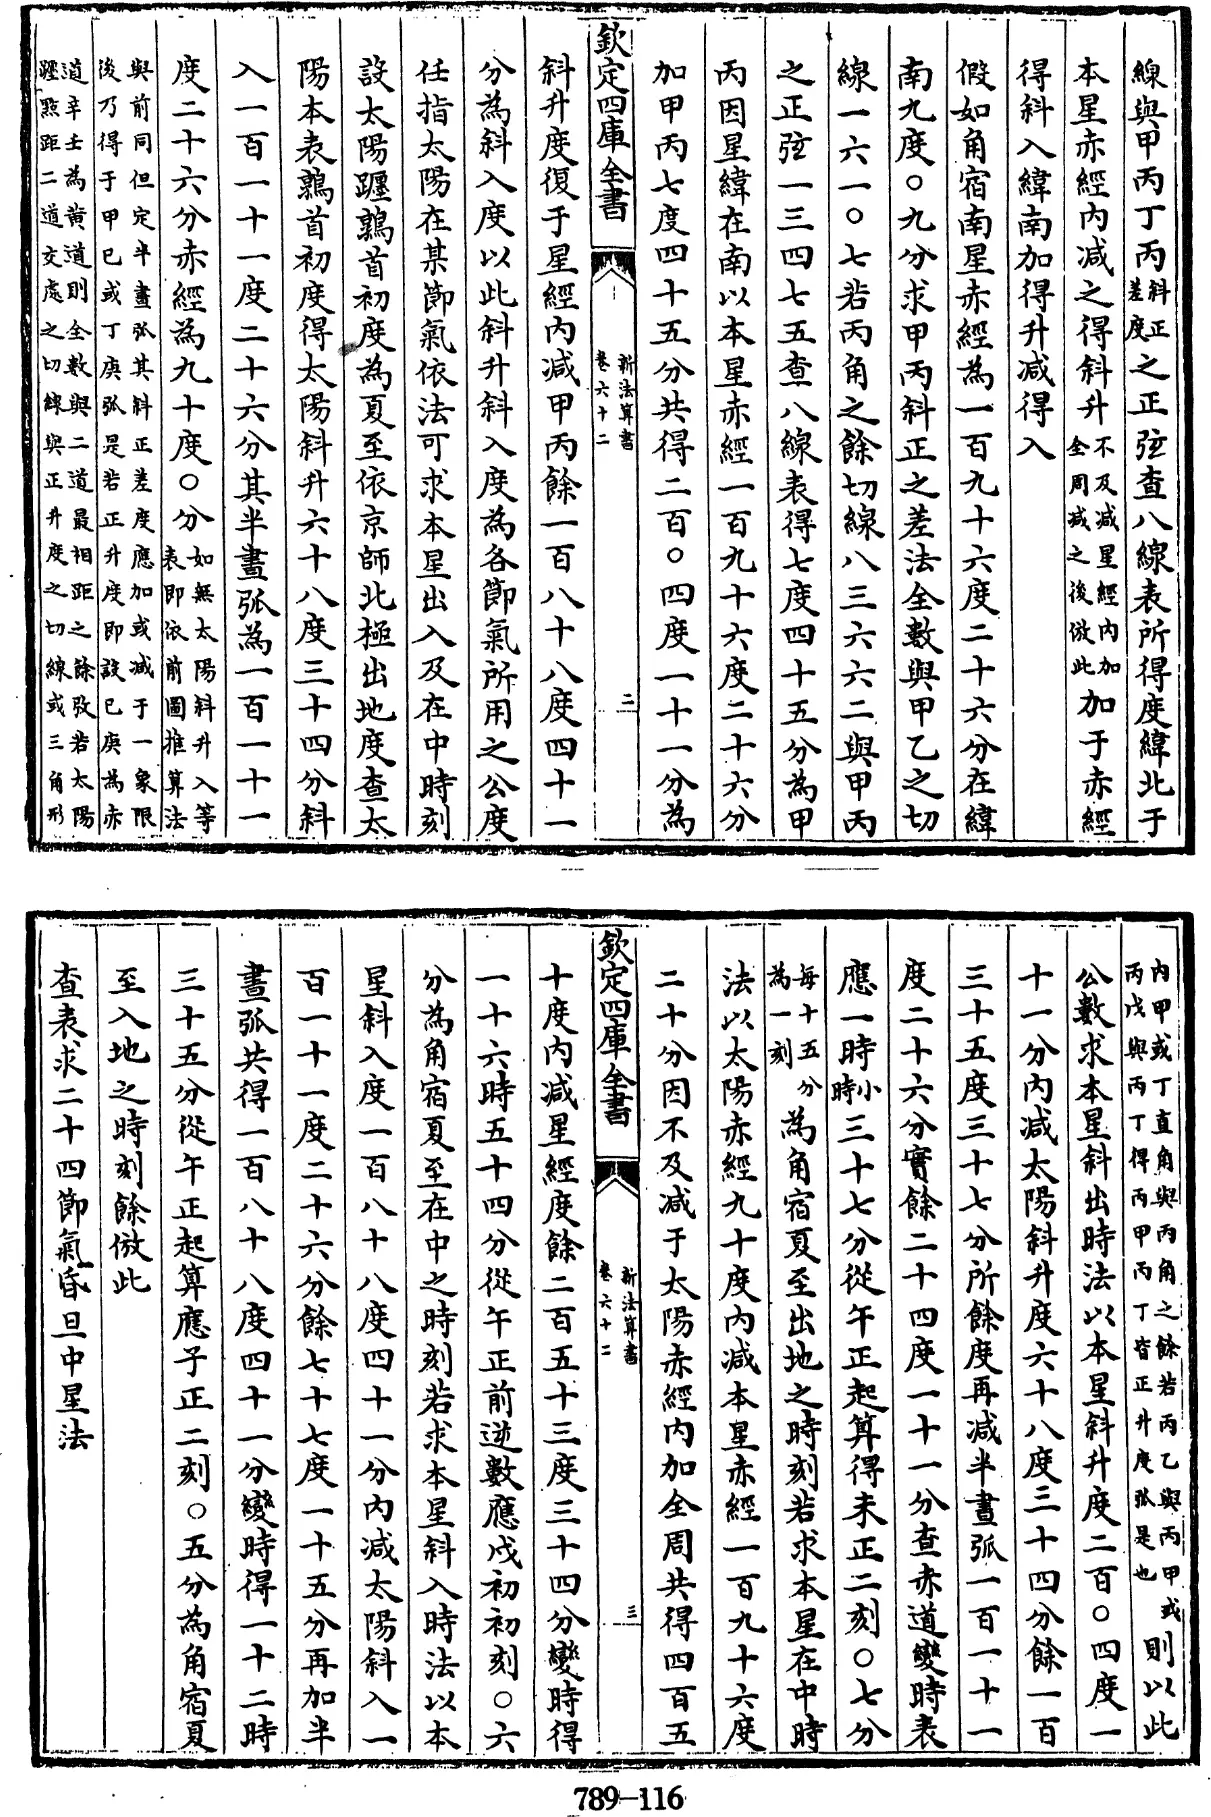 線與甲丙丁丙斜正差度之正弦查八線表所得度緯北于
本星赤經內減之得斜升不及減星經內加全周減之後倣此加于赤經
得斜入緯南加得升減得入
假如角宿南星赤經為一百九十六度二十六分在緯
南九度○九分求甲丙斜正之差法全數與甲乙之切
線一六一○七若丙角之餘切線八三六六二與甲丙
之正弦一三四七五查八線表得七度四十五分為甲
丙因星緯在南以本星赤經一百九十六度二十六分
加甲丙七度四十五分共得二百○四度一十一分為
欽定四庫全書
新法算書
卷六十二
二
斜升度復于星經內減甲丙餘一百八十八度四十一
分為斜入度以此斜升斜入度為各節氣所用之公度
任指太陽在某節氣依法可求本星出入及在中時刻
設太陽躔鶉首初度為夏至依京師北極出地度查太
陽本表鶉首初度得太陽斜升六十八度三十四分斜
入一百一十一度二十六分其半晝弧為一百一十一
度二十六分赤經為九十度○分如無太陽斜升入等表即依前圖推算法
與前同但定半晝弧其斜正差度應加或減于一象限
後乃得于甲已或丁庚弧是若正升度即設已庚為赤
道辛壬為黃道則全數與二道最相距之餘弦若太陽
躔點距二道交處之切線與正升度之切線或三角形
內甲或丁直角與丙角之餘若丙乙與丙甲或
丙戊與丙丁得丙甲丙丁皆正升度弧是也則以此
公數求本星斜出時法以本星斜升度二百○四度一
十一分內減太陽斜升度六十八度三十四分餘一百
三十五度三十七分所餘度再減半晝弧一百一十一
度二十六分實餘二十四度一十一分查赤道變時表
應一時小時三十七分從午正起算得未正二刻○七分
每十五分為一刻為角宿夏至出地之時刻若求本星在中時
法以太陽赤經九十度內減本星赤經一百九十六度
二十六分因不及減于太陽赤經內加全周共得四百五
欽定四庫全書
新法算書
卷六十二
三
十度內減星經度餘二百五十三度三十四分變時得
一十六時五十四分從午正前逆數應戌初初刻○六
分為角宿夏至在中之時刻若求本星斜入時法以本
星斜入度一百八十八度四十一分內減太陽斜入一
百一十一度二十六分餘七十七度一十五分再加半
晝弧共得一百八十八度四十一分變時得一十二時
三十五分從午正起算應子正二刻○五分為角宿夏
至入地之時刻餘倣此
查表求二十四節氣昏旦中星法
789-116